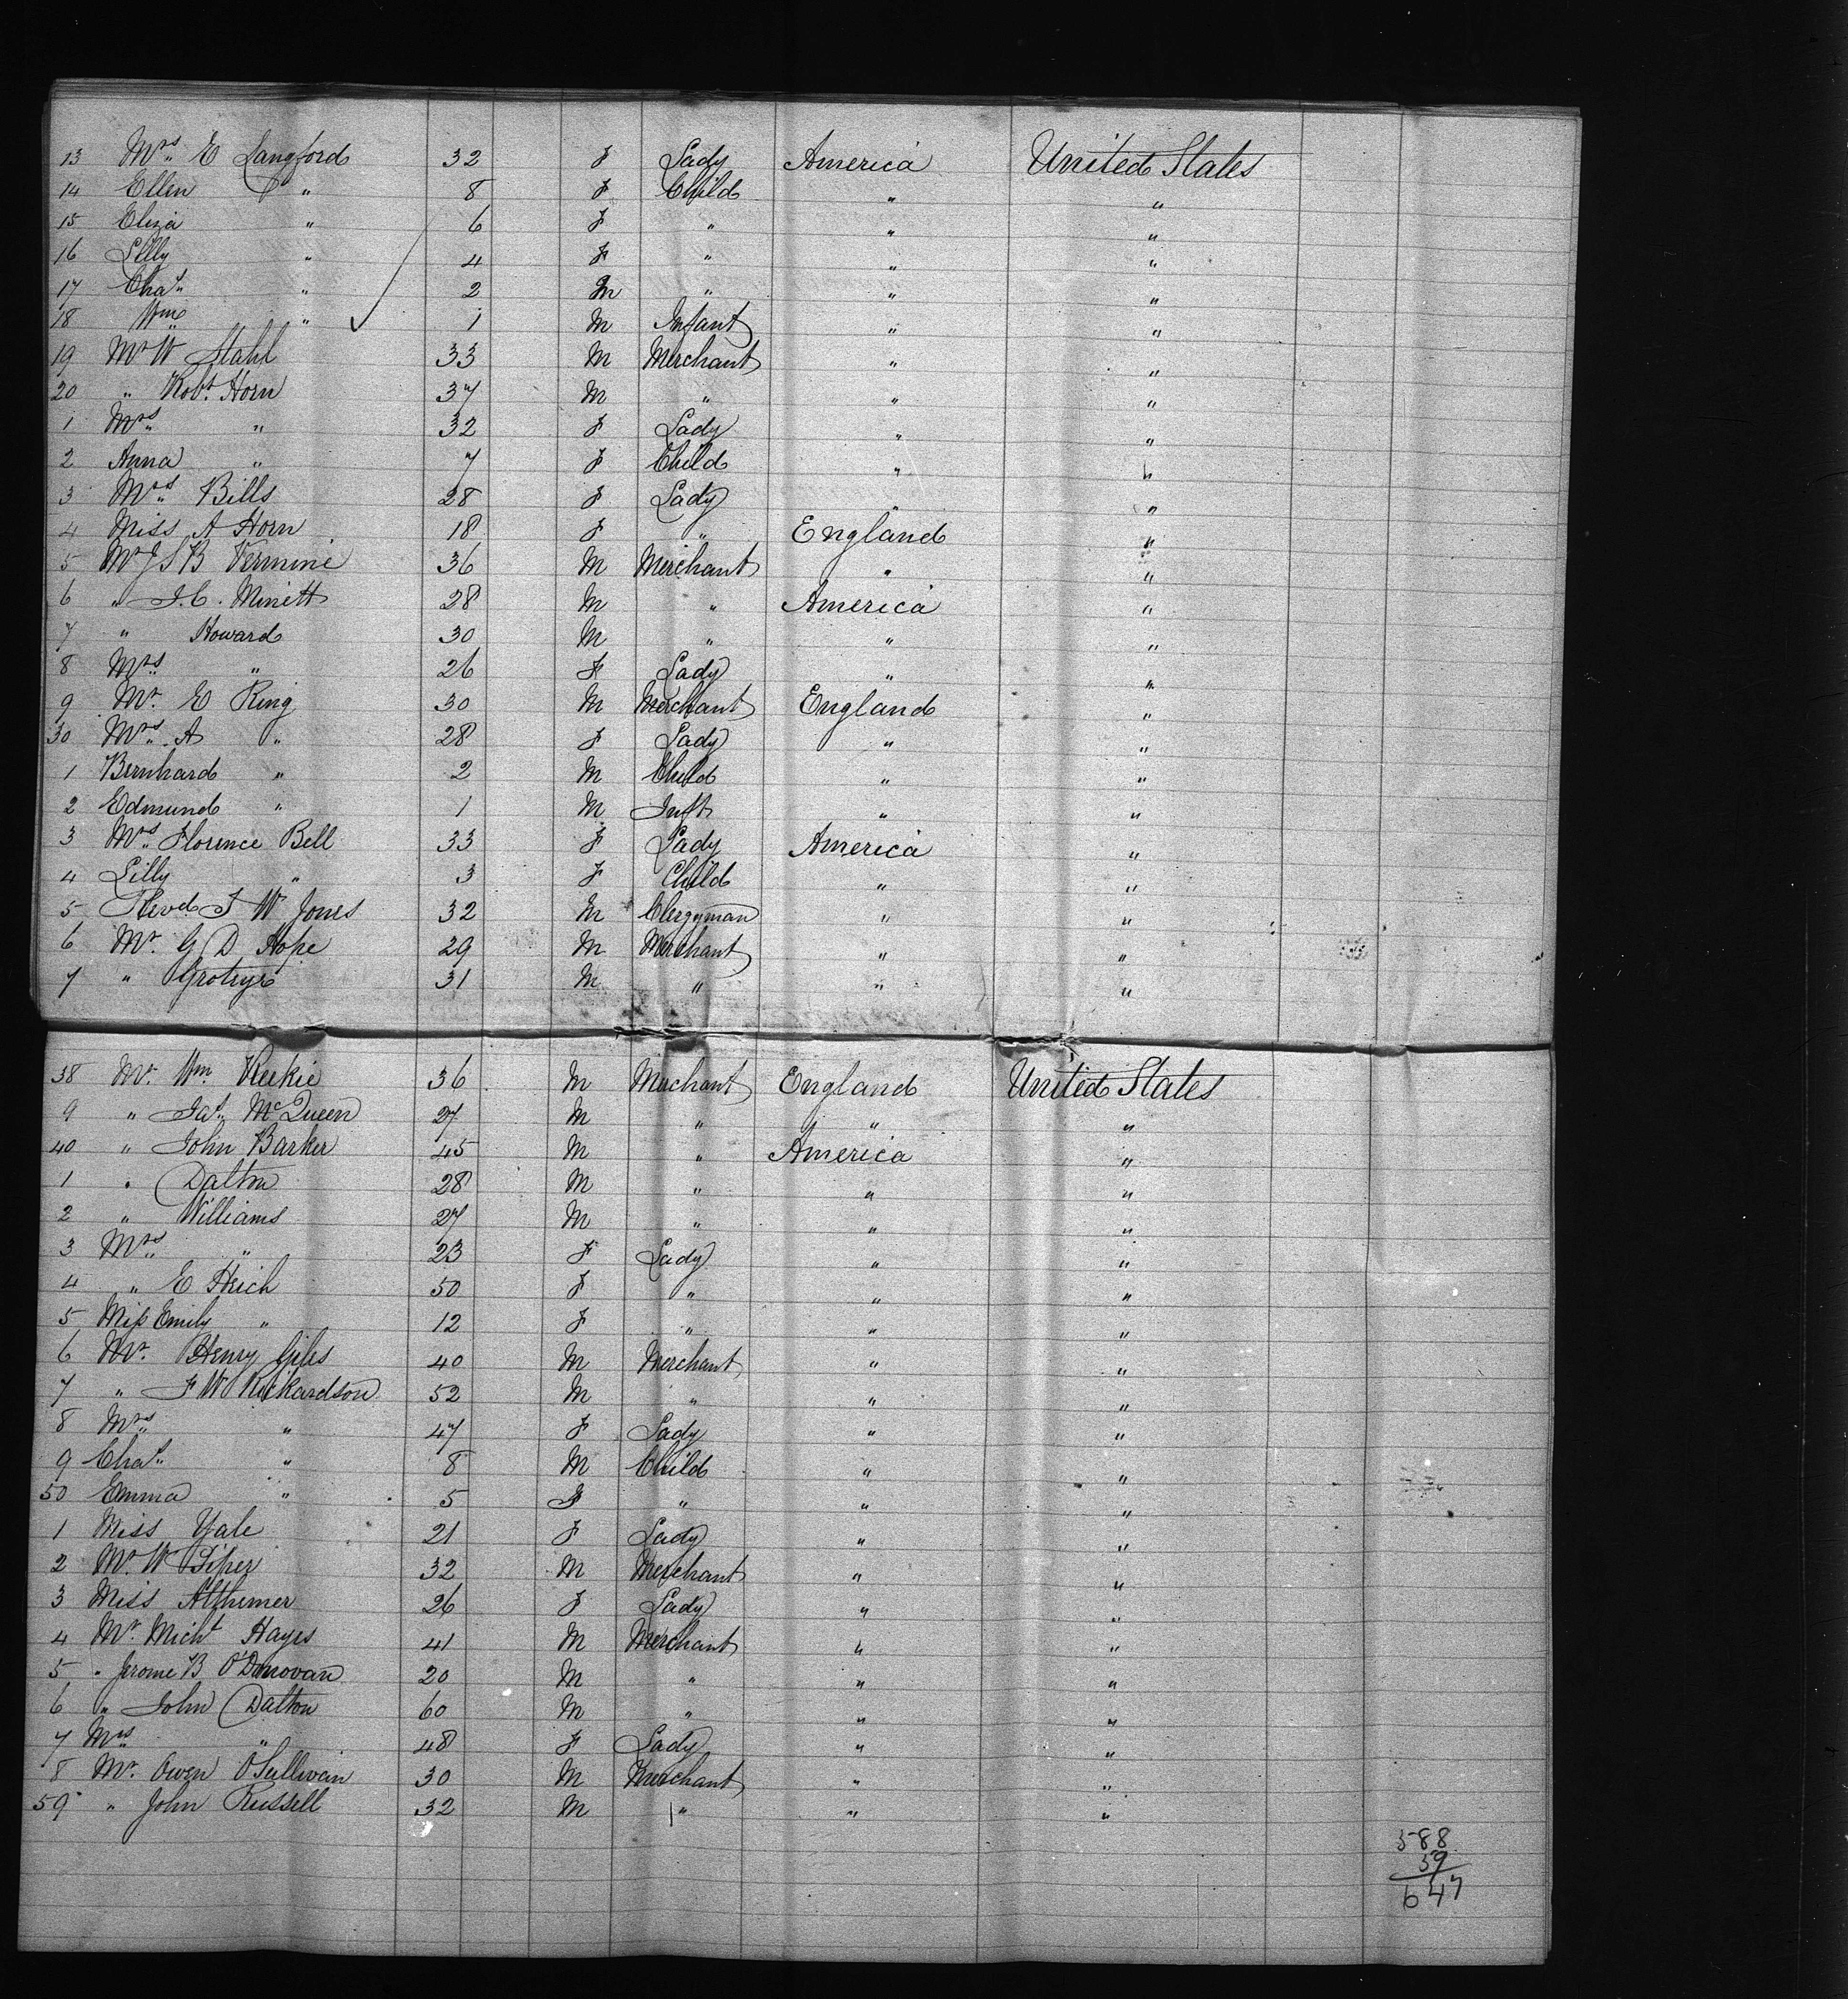 13 Mrs E Langford 32 F Lady America United States
14 Ellen " 8 F Child " "
15 Eliza " 6 F " " "
16 Lilly " 4 F " " "
17 Chas " 2 M " " "
18 Wm " 1 M Infant " "
19 Mr W Stahl 33 M Merchant " "
20 " Robt. Horn 37 M " " "
1 Mrs " 32 F Lady " "
2 Anna " 7 F Child " "
3 Mrs Bills 28 F Lady " "
4 Miss A Horn 18 F " England "
5 Mr J S B Vermine 36 M Merchant " "
6 " J. C. Minett 28 M " America "
7 " Howard 30 M " " "
8 Mrs " 26 F Lady " "
9 Mr. E Ring 30 M Merchant England "
30 Mrs A " 28 F Lady " "
1 Bernhard " 2 M Child " "
2 Edmund " 1 M Inft " "
3 Mrs Florence Bell 33 F Lady America "
4 Lilly " 3 F Child " "
5 Revd J W Jones 32 M Clergyman " "
6 Mr. G D Hope 29 M Merchant " "
7 " 31 M " " "
38 Mr. Wm. Reekie 36 M Merchant England United States
9 " Jas. McQueen 27 M " " "
40 " John Barker 45 M " America "
1 " Dalton 28 M " " "
2 " Williams 27 M " " "
3 Mrs " 23 F Lady " "
4 " E Heich 50 F " " "
5 Miss Emily " 12 F " " "
6 Mr. Henry Giles 40 M Merchant " "
7 " F W Richardson 52 M " " "
8 Mrs " 47 F Lady " "
9 Chas " 8 M Child " "
50 Emma " 5 F " " "
1 Miss Yale 21 F Lady " "
2 Mr. W Piper 32 M Merchant " "
3 Miss Althimer 26 F Lady " "
4 Mr. Michl Hayes 41 M Merchant " "
5 " Jerome B O'Donovan 20 M " " "
6 " John Dalton 60 M " " "
7 Mrs " 48 F Lady " "
8 Mr. Owen O'Sullivan 30 M Merchant " "
59 " John Russell 32 M " " "
588
59
647